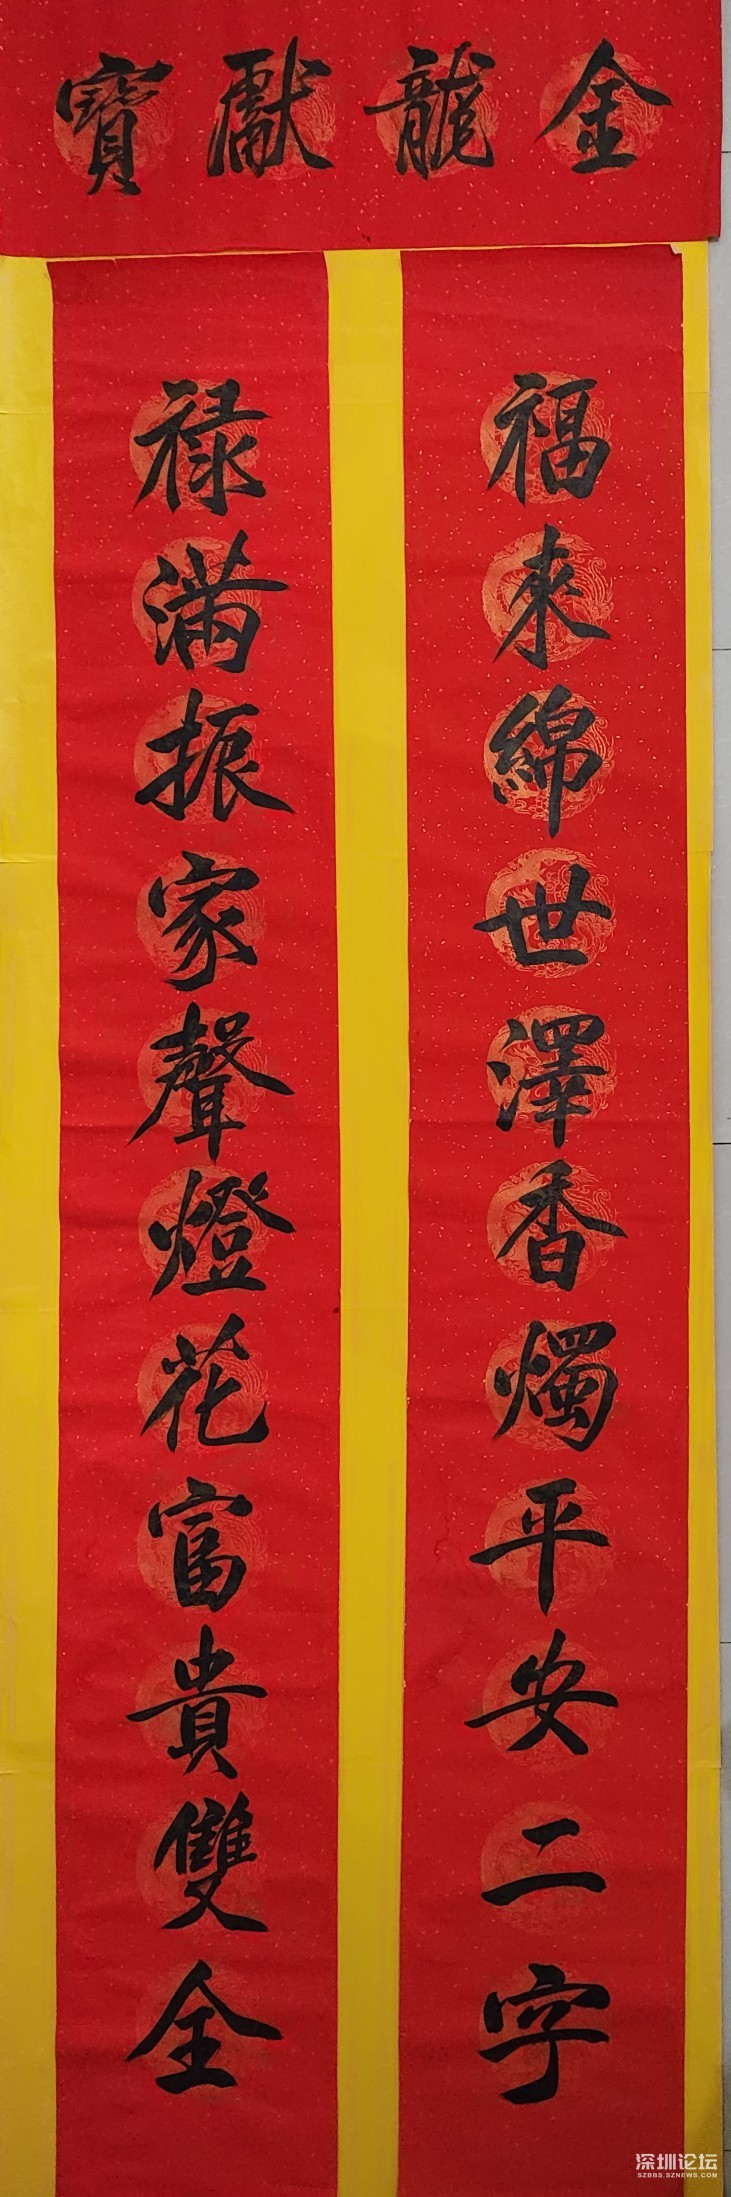 金龍獻寶
福來綿世澤香燭平安二字
禄滿振家聲燈花富貴雙全
深圳论坛
SZBBS.SZNEWS.COM